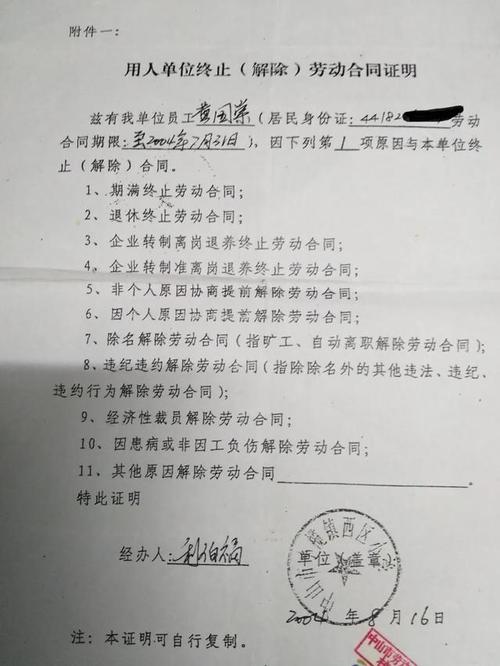 附件一：
用人单位终止（解除）劳动合同证明
兹有我单位员工黄国荣（居民身份证：44182 劳动
合同期限：至2004年7月31日），因下列第1项原因与本单位终
止（解除）合同。
1、期满终止劳动合同；
2、退休终止劳动合同；
3、企业转制离岗退养终止劳动合同；
4、企业转制准离岗退养终止劳动合同；
5、非个人原因协商提前解除劳动合同；
6、因个人原因协商提前解除劳动合同；
7、除名解除劳动合同（指旷工、自动离职解除劳动合同）；
8、违纪违约解除劳动合同（指除除名外的其他违法、违纪、
违约行为解除劳动合同）；
9、经济性裁员解除劳动合同；
10、因患病或非因工负伤解除劳动合同；
11、其他原因解除劳动合同
特此证明
经办人：
单位（盖章）
中山市 镇西区
2004年8月16日
注：本证明可自行复制。
中山市